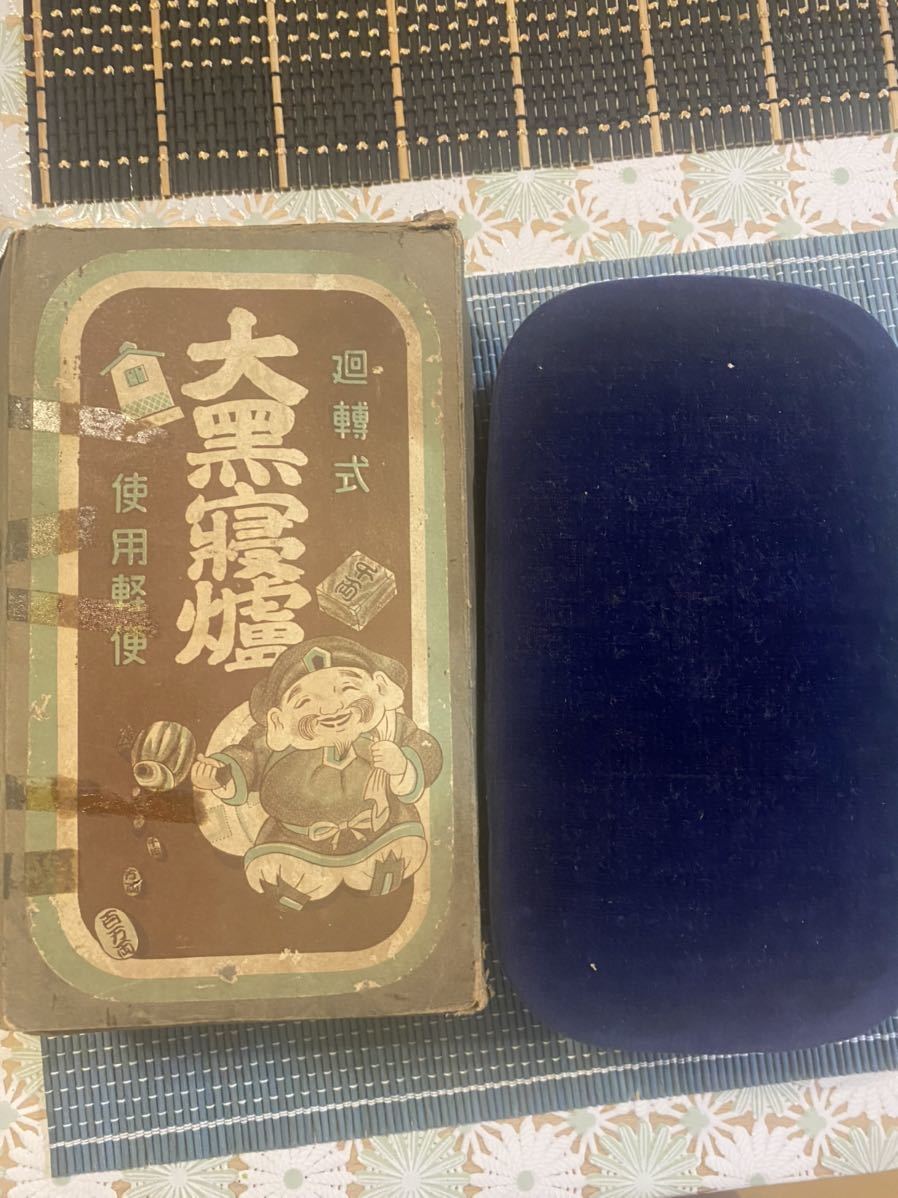 廻轉式
大黑寢爐
使用軽便